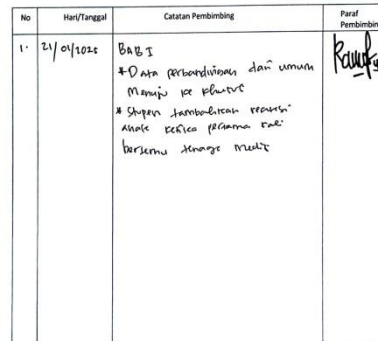 No Hari/Tanggal Catatan Pembimbing Paraf
Pembimbin
1. 21/01/2025 BAB I
* Data perbandingan dari umum
Menuju ke khusus
* Stupen tambahkan reaksi
anak ketika pertama kali
bertemu tenaga medis